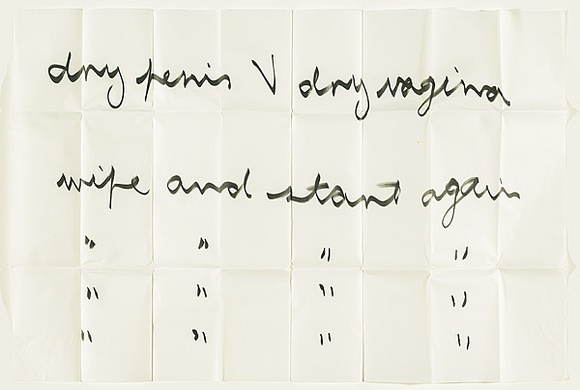 dry penis V dry vagina
wipe and start again
" " " "
" " " "
" " " "